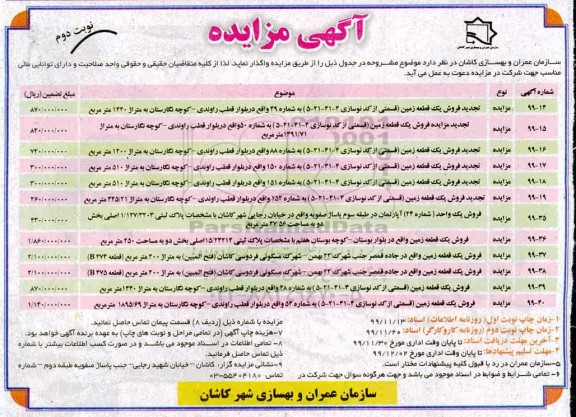 آگهی مزایده
نوبت دوم
سازمان عمران و بهسازی شهر کاشان
سازمان عمران و بهسازی کاشان در نظر دارد موضوع مشروحه در جدول ذیل را از طریق مزایده واگذار نماید. لذا از کلیه متقاضیان حقیقی و حقوقی واجد صلاحیت و دارای توانایی مالی
مناسب جهت شرکت در مزایده دعوت به عمل می آید.
شماره آگهی نوع موضوع مبلغ تضمین (ریال)
۹۹-۱۴ مزایده تجدید فروش یک قطعه زمین (قسمتی از کد نوسازی ۴-۳۱-۲۱-۵) به شماره ۴۹ واقع دربلوار قطب راوندی -کوچه نگارستان به متراژ ۱۴۴۰ متر مربع ۸۷۰/۰۰۰/۰۰۰
۹۹-۱۵ مزایده تجدید مزایده فروش یک قطعه زمین (قسمتی از کد نوسازی ۴-۳۱-۲۱-۵) به شماره ۵۰ واقع دربلوار قطب راوندی -کوچه نگارستان به متراژ
۱۳۹۱/۷۱ متر مربع ۸۴۰/۰۰۰/۰۰۰
۹۹-۱۶ مزایده تجدید فروش یک قطعه زمین (قسمتی از کد نوسازی ۴-۳۱-۲۱-۵) به شماره ۸۸ واقع دربلوار قطب راوندی -کوچه نگارستان به متراژ ۱۲۰۰ متر مربع ۷۲۰/۰۰۰/۰۰۰
۹۹-۱۷ مزایده تجدید فروش یک قطعه زمین (قسمتی از کد نوسازی ۴-۳۱-۲۱-۵) به شماره ۱۵۰ واقع دربلوار قطب راوندی -کوچه نگارستان به متراژ ۵۱۰ متر مربع ۳۰۰/۰۰۰/۰۰۰
۹۹-۱۸ مزایده تجدید فروش یک قطعه زمین (قسمتی از کد نوسازی ۴-۳۱-۲۱-۵) به شماره ۱۵۱ واقع دربلوار قطب راوندی -کوچه نگارستان به متراژ ۵۱۰ متر مربع ۳۰۰/۰۰۰/۰۰۰
۹۹-۱۹ مزایده تجدید فروش یک قطعه زمین (قسمتی از کد نوسازی ۴-۳۱-۲۱-۵) به شماره ۱۵۲ واقع دربلوار قطب راوندی -کوچه نگارستان به متراژ ۴۲۵/۲۱ متر مربع ۲۶۰/۰۰۰/۰۰۰
۹۹-۳۵ مزایده فروش یک واحد (شماره ۲۴) آپارتمان در طبقه سوم پاساژ صفویه واقع در خیابان رجایی شهر کاشان با مشخصات پلاک ثبتی ۱/۱۲۷/۳۲۰۳ اصلی بخش
دو به مساحت ۳۷/۵۶ متر مربع ۴۳۰/۰۰۰/۰۰۰
۹۹-۳۶ مزایده فروش یک قطعه زمین واقع در بلوار بوستان -کوچه بوستان هفتم با مشخصات پلاک ثبتی ۱۵/۲۴۲۱۲ اصلی بخش دو به مساحت ۲۵۰ متر مربع ۱/۸۶۰/۰۰۰/۰۰۰
۹۹-۳۷ مزایده فروش یک قطعه زمین واقع در جاده قمصر جنب شهرک ۲۲ بهمن -شهرک مسکونی فردوسی کاشان (فتح المبین) به متراژ ۲۰۰ متر مربع (قطعه B ۴۷۴) ۲/۱۰۰/۰۰۰/۰۰۰
۹۹-۳۸ مزایده فروش یک قطعه زمین واقع در جاده قمصر جنب شهرک ۲۲ بهمن -شهرک مسکونی فردوسی کاشان (فتح المبین) به متراژ ۲۰۰ متر مربع (قطعه B ۴۷۵) ۲/۱۰۰/۰۰۰/۰۰۰
۹۹-۳۹ مزایده فروش یک قطعه زمین (قسمتی از کد نوسازی ۴-۳۱-۲۱-۵) به شماره ۴۸ واقع دربلوار قطب راوندی -کوچه نگارستان به متراژ ۱۴۴۰ متر مربع ۸۷۰/۰۰۰/۰۰۰
۹۹-۴۰ مزایده فروش یک قطعه زمین (قسمتی از کد نوسازی ۴-۳۱-۲۱-۵) به شماره ۵۴ واقع دربلوار قطب راوندی -کوچه نگارستان به متراژ ۱۸۹۵/۶۹ متر مربع ۱/۱۴۰/۰۰۰/۰۰۰
۱-زمان چاپ نوبت اول (روزنامه اطلاعات) اسناد: ۹۹/۱۱/۱۳
۲-زمان چاپ نوبت دوم (روزنامه کاروکارگر) اسناد: ۹۹/۱۱/۲۰
۳-آخرین مهلت دریافت اسناد: تا پایان وقت اداری مورخ ۹۹/۱۱/۳۰
۴-مهلت تسلیم پیشنهادها: تا پایان وقت اداری مورخ ۹۹/۱۲/۰۲
۵-سازمان عمران در رد یا قبول کلیه پیشنهادات مختار است.
۶- تمامی شرایط و ضوابط در اسناد موجود می باشد و جهت هرگونه سوال جهت شرکت در
مزایده با شماره ذیل (ردیف ۸) قسمت پیمان تماس حاصل نمائید.
۷-هزینه چاپ آگهی (در تمامی مراحل و نوبت های چاپ) به عهده برنده آگهی خواهد بود.
۸- تمامی اطلاعات در اسناد موجود می باشد و در صورت کسب اطلاعات بیشتر با شماره
ذیل تماس حاصل فرمائید.
۹-نشانی برگزار گزار: کاشان - خیابان شهید رجایی- جنب پاساژ صفویه طبقه دوم - شماره
تماس ۵۵۴۰۴۱۸۰-۰۳
سازمان عمران و بهسازی شهر کاشان
ParsNamadData